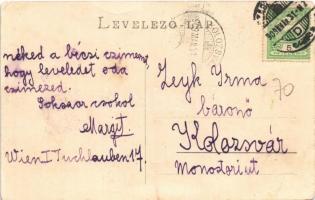 LEVELEZŐ-LAP
néked a bécsi czimemet,
hogy leveledet oda
czimezed.
Sokszor csókol
Margit.
Wien I Tuchlauben 17.
Zeyk Irma
bárónő
Kolozsvár
Monostori ut
70